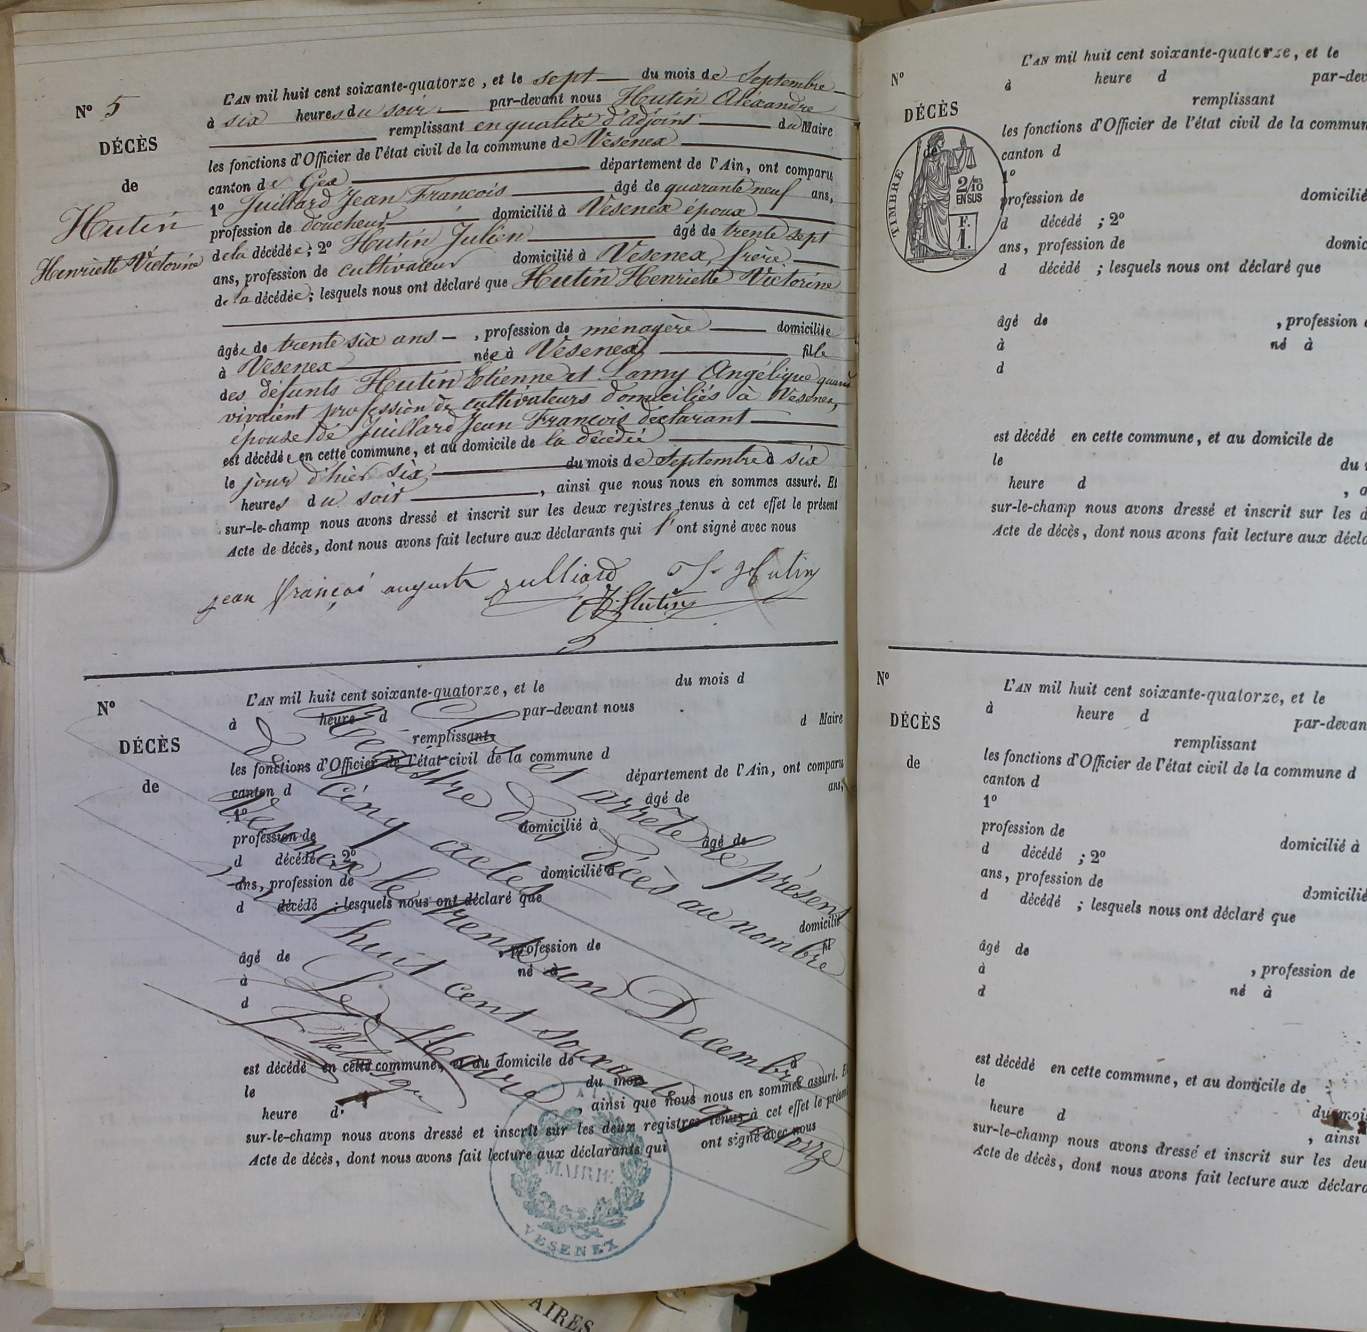 N° 5
DÉCÈS
de
Hutin
Henriette Victorine
L'AN mil huit cent soixante-quatorze, et le sept du mois de Septembre
à six heures du soir par-devant nous Hutin Alexandre
remplissant en qualité d'adjoint du Maire
les fonctions d'Officier de l'état civil de la commune de Vesenex
canton de Gex département de l'Ain, ont comparu
1° Juillard Jean François âgé de quarante neuf ans,
profession de domicilié à Vesenex époux
de la décédée; 2° Hutin Julien âgé de trente sept
ans, profession de cultivateur domicilié à Vesenex, frère
de la décédée; lesquels nous ont déclaré que Hutin Henriette Victorine
âgée de trente six ans, profession de ménagère domiciliée
à Vesenex née à Vesenex fille
des défunts Hutin Etienne et Lamy Angélique quand
vivaient profession de cultivateurs domiciliés à Vesenex,
épouse de Juillard Jean François déclarant
est décédée en cette commune, et au domicile de la décédée
le jour d'hier six du mois de Septembre à six
heures du soir, ainsi que nous nous en sommes assuré. Et
sur-le-champ nous avons dressé et inscrit sur les deux registres tenus à cet effet le présent
Acte de décès, dont nous avons fait lecture aux déclarants qui l'ont signé avec nous
jean françois auguste julliard J. Hutin
Hutin
N°
DÉCÈS
de
L'AN mil huit cent soixante-quatorze, et le du mois d
à heure d par-devant nous
remplissant d Maire
les fonctions d'Officier de l'état civil de la commune d
canton d département de l'Ain, ont comparu
1° âgé de ans,
profession de domicilié à
d décédé ; 2° âgé de
ans, profession de domicilié à
d décédé ; lesquels nous ont déclaré que
âgé de , profession de domicilié
à né à fil
d
est décédé en cette commune, et au domicile de
le du mois
heure d , ainsi que nous nous en sommes assuré. Et
sur-le-champ nous avons dressé et inscrit sur les deux registres tenus à cet effet le présent
Acte de décès, dont nous avons fait lecture aux déclarants qui ont signé avec nous
Clos et arrêté le présent
Registre des décès au nombre
de cinq actes
Vesenex le trente un Décembre
mil huit cent soixante quatorze
Le Maire
MAIRIE
VESENEX
N°
DÉCÈS
de
TIMBRE
2/10
EN SUS
F.
1.
L'AN mil huit cent soixante-quatorze, et le
à heure d par-dev
remplissant
les fonctions d'Officier de l'état civil de la commun
canton d
1°
profession de domicilié
d décédé ; 2°
ans, profession de domic
d décédé ; lesquels nous ont déclaré que
âgé de , profession
à né à
d
est décédé en cette commune, et au domicile de
le du
heure d , a
sur-le-champ nous avons dressé et inscrit sur les d
Acte de décès, dont nous avons fait lecture aux décla
N°
DÉCÈS
de
L'AN mil huit cent soixante-quatorze, et le
à heure d par-devan
remplissant
les fonctions d'Officier de l'état civil de la commune d
canton d
1°
profession de domicilié à
d décédé ; 2°
ans, profession de domicilié
d décédé ; lesquels nous ont déclaré que
âgé de
à , profession de
d né à
est décédé en cette commune, et au domicile de
le du moi
heure d , ainsi
sur-le-champ nous avons dressé et inscrit sur les deu
Acte de décès, dont nous avons fait lecture aux déclara
AIRES